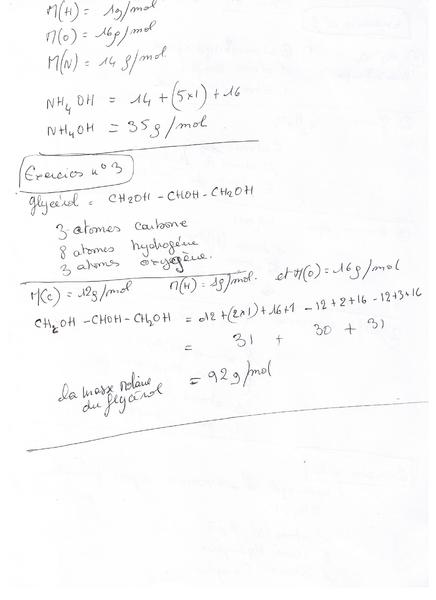 M(H) = 1g/mol
M(O) = 16g/mol
M(N) = 14 g/mol
NH4 OH = 14 + (5x1) + 16
NH4OH = 35 g/mol
Exercice n° 3
glycérol = CH2OH - CHOH - CH2OH
3 atomes carbone
8 atomes hydrogène
3 atomes oxygène.
M(C) = 12g/mol M(H) = 1g/mol. et M(O) = 16g/mol
CH2OH - CHOH - CH2OH = 12 + (2x1) + 16+1 - 12 + 2 + 16 - 12+3+16
= 31 + 30 + 31
la masse molaire = 92g/mol
du glycérol